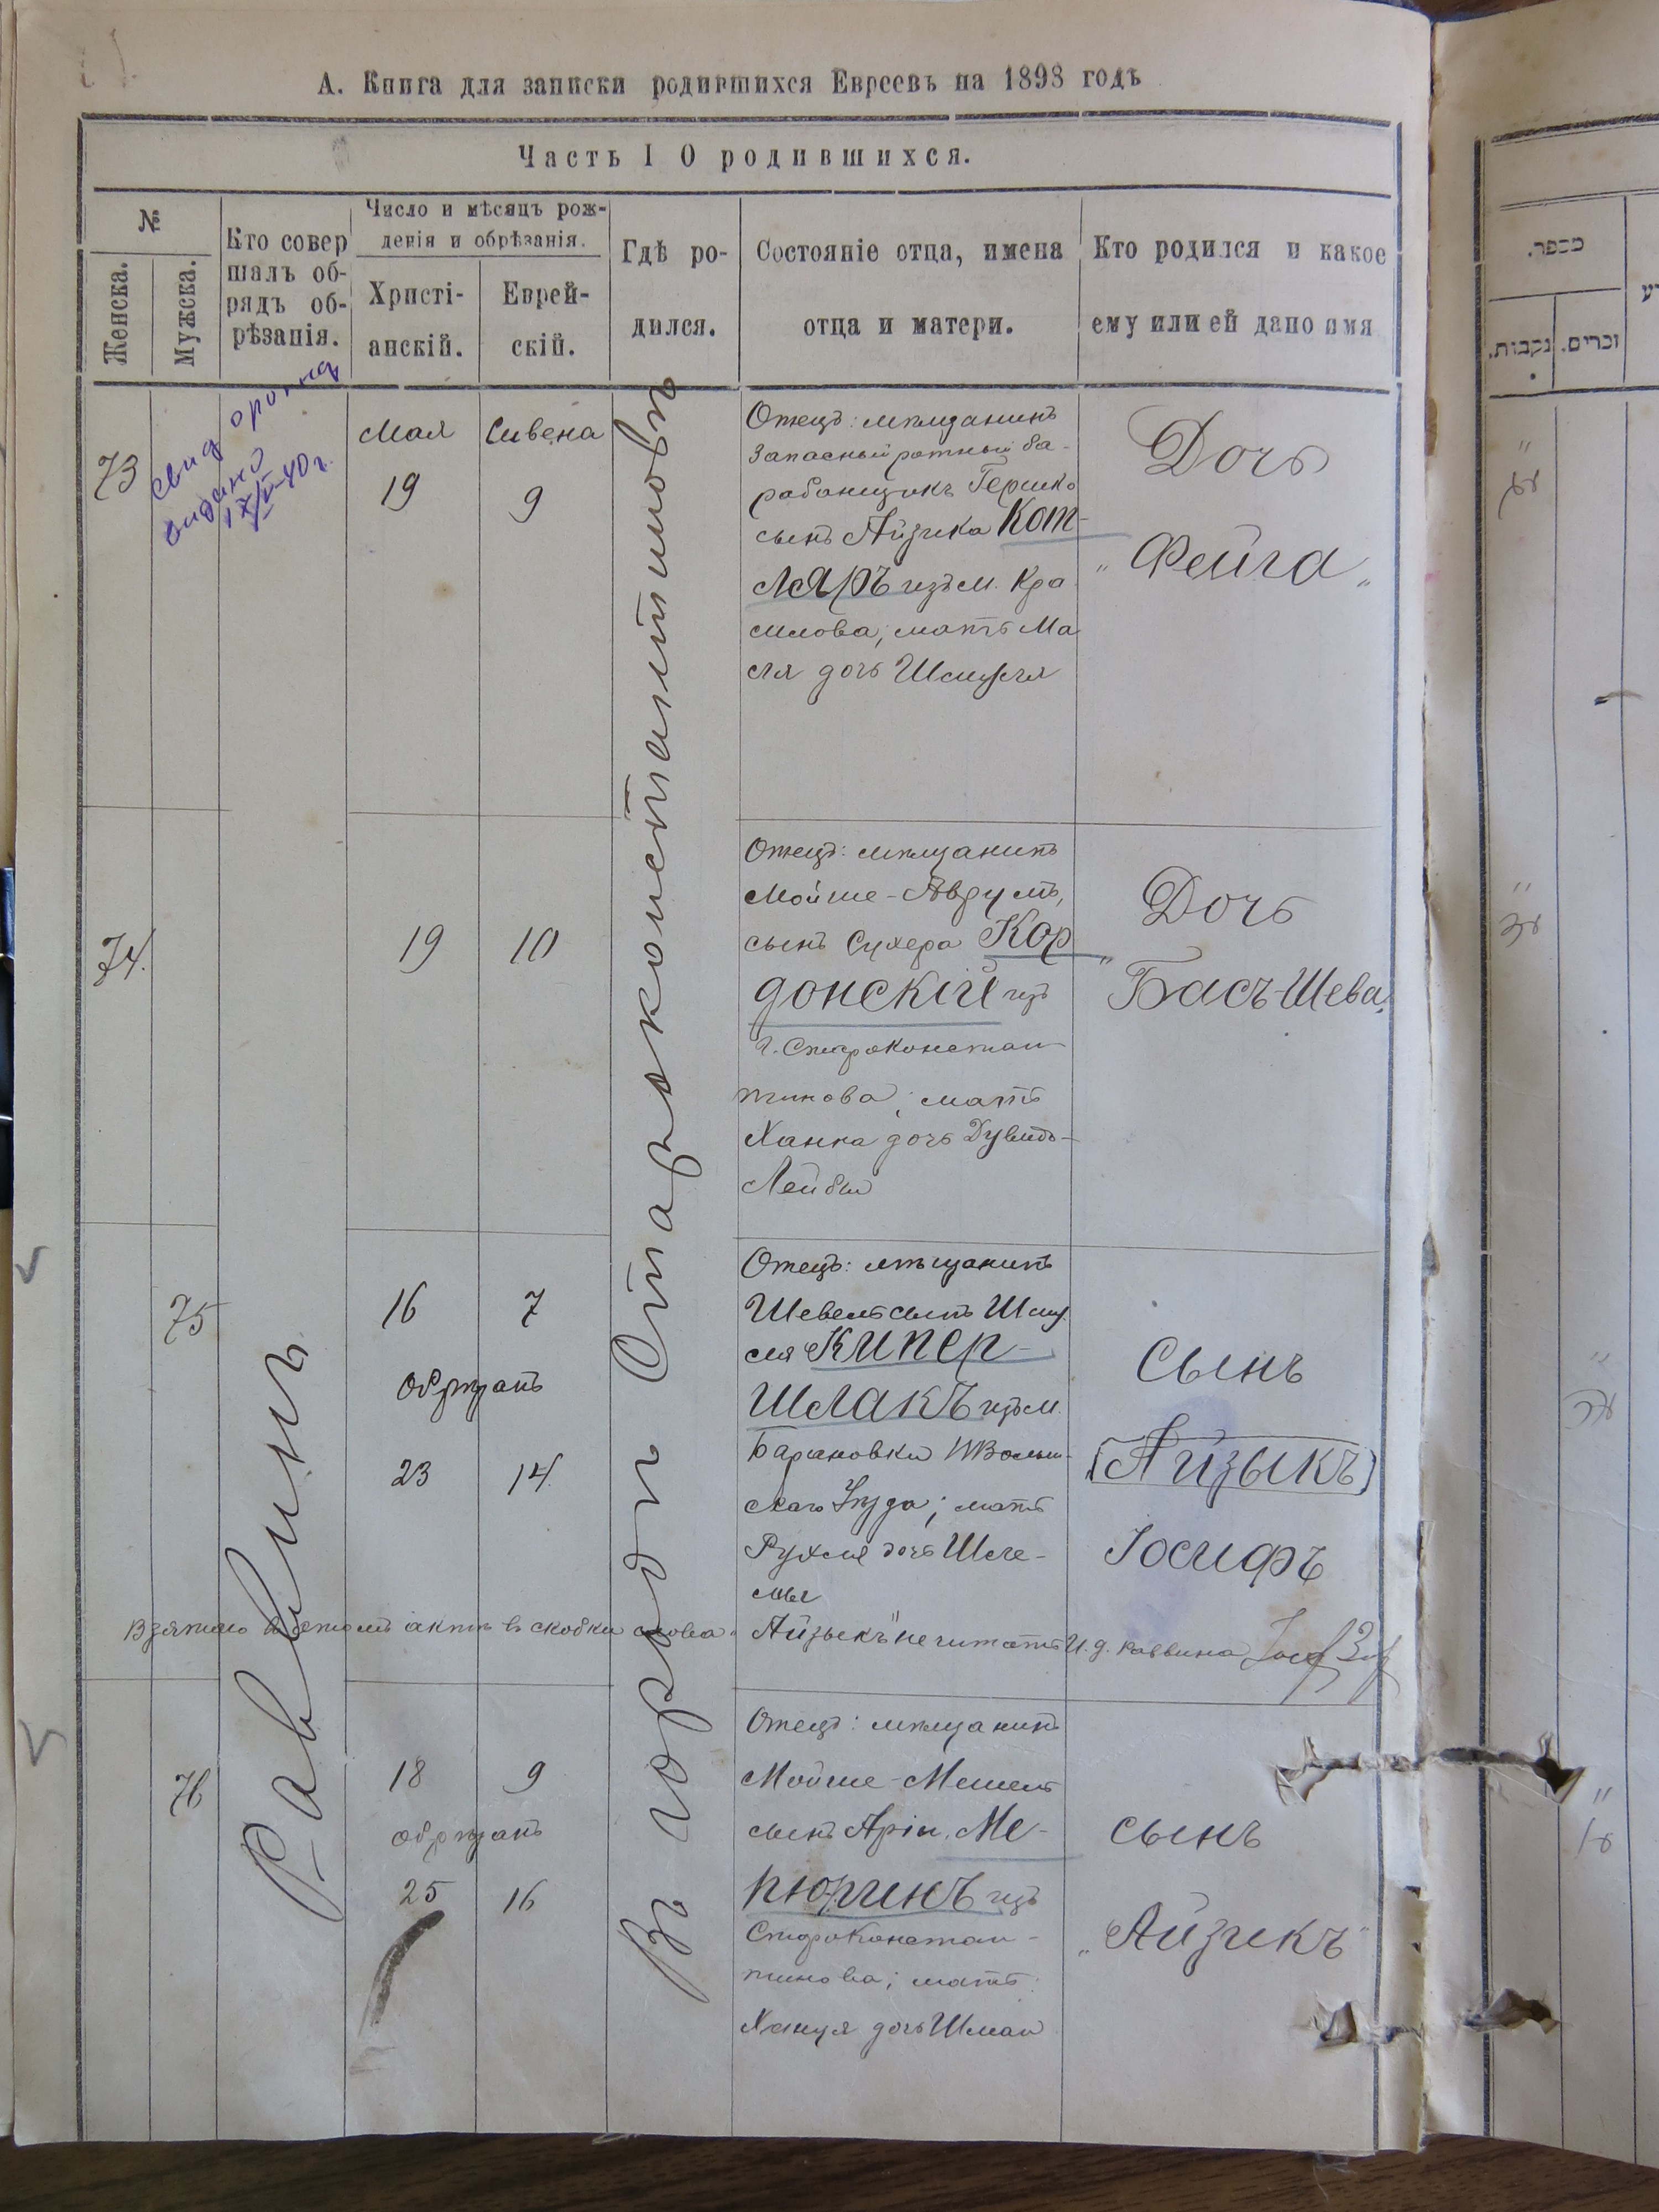 А. Книга для записки родившихся Евреевъ на 1898 годъ
Часть I О родившихся.
№
Женска.
Мужска.
Кто совер
шалъ об-
рядъ об-
рѣзанія.
Число и мѣсяцъ рож-
денія и обрѣзанія.
Христі-
анскій.
Еврей-
скій.
Гдѣ ро-
дился.
Состояніе отца, имена
отца и матери.
Кто родился и какое
ему или ей дано имя
Раввинъ
Въ городѣ Староконстантиновѣ
73
свид
выдано
Мая
19
Сивена
9
Отецъ: мѣщанинъ
Запасный ротный ба-
рабанщикъ Гершко
сынъ Айзика Кот-
ляръ изъ м. Кра
силова; мать Ма
ся дочь Шмуля
Дочь
„Фейга„
74.
19
10
Отецъ: мѣщанинъ
Мойше-Аврумъ,
сынъ Сухера Кор
донскій изъ
г. Староконстан
тинова; мать
Ханка дочь Дувидъ-
Лейбы
Дочь
„Бась-Шева„
75
16
7
обрѣзанъ
23
14.
Отецъ: мѣщанинъ
Шевель сынъ Шму
ля Кипер-
шлакъ изъ м.
Барановки НВолын-
скаго Уѣзда; мать
Рухля дочь Шле-
мы
Сынъ
(Айзыкъ)
Іосифъ
Взятаго въ этомъ актѣ въ скобки слова „Айзыкъ" не читать И. д. раввина
76
18
9
обрѣзанъ
25
16
Отецъ: мѣщанинъ
Мойше-Мешель
сынъ Аріи Ме-
нюринъ изъ
Староконстан-
тинова; мать:
Ханця дочь Шмаи
сынъ
„Айзикъ"
מספר.
נקבות.
זכרים.